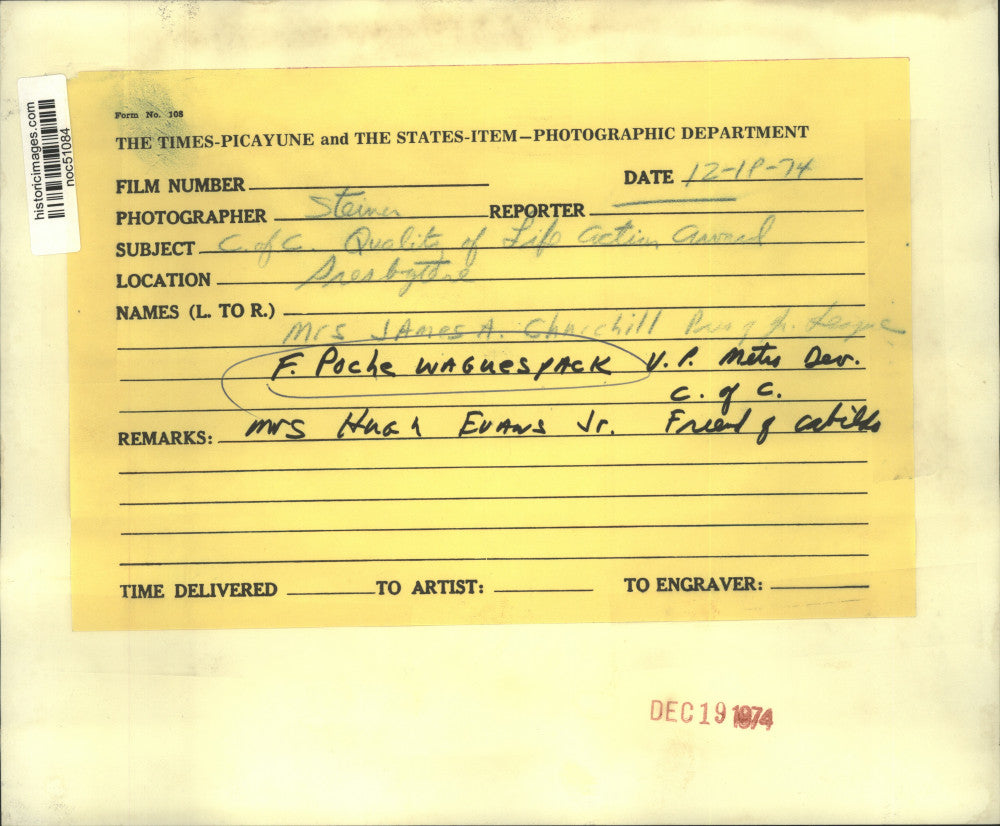 historicimages.com
noc51084
Form No. 108
THE TIMES-PICAYUNE and THE STATES-ITEM—PHOTOGRAPHIC DEPARTMENT
FILM NUMBER
DATE 12-18-74
PHOTOGRAPHER Steiner REPORTER
SUBJECT C. of C. Quality of Life Action Award
LOCATION Presbytere
NAMES (L. TO R.)
Mrs JAmes A. Churchill Pres of Jr. League
F. Poche WAGuespACK V. P. Metro Dev.
C. of C.
REMARKS: Mrs Hugh EvANs Jr. Friend of Cabildo
TIME DELIVERED TO ARTIST: TO ENGRAVER:
DEC 19 1974